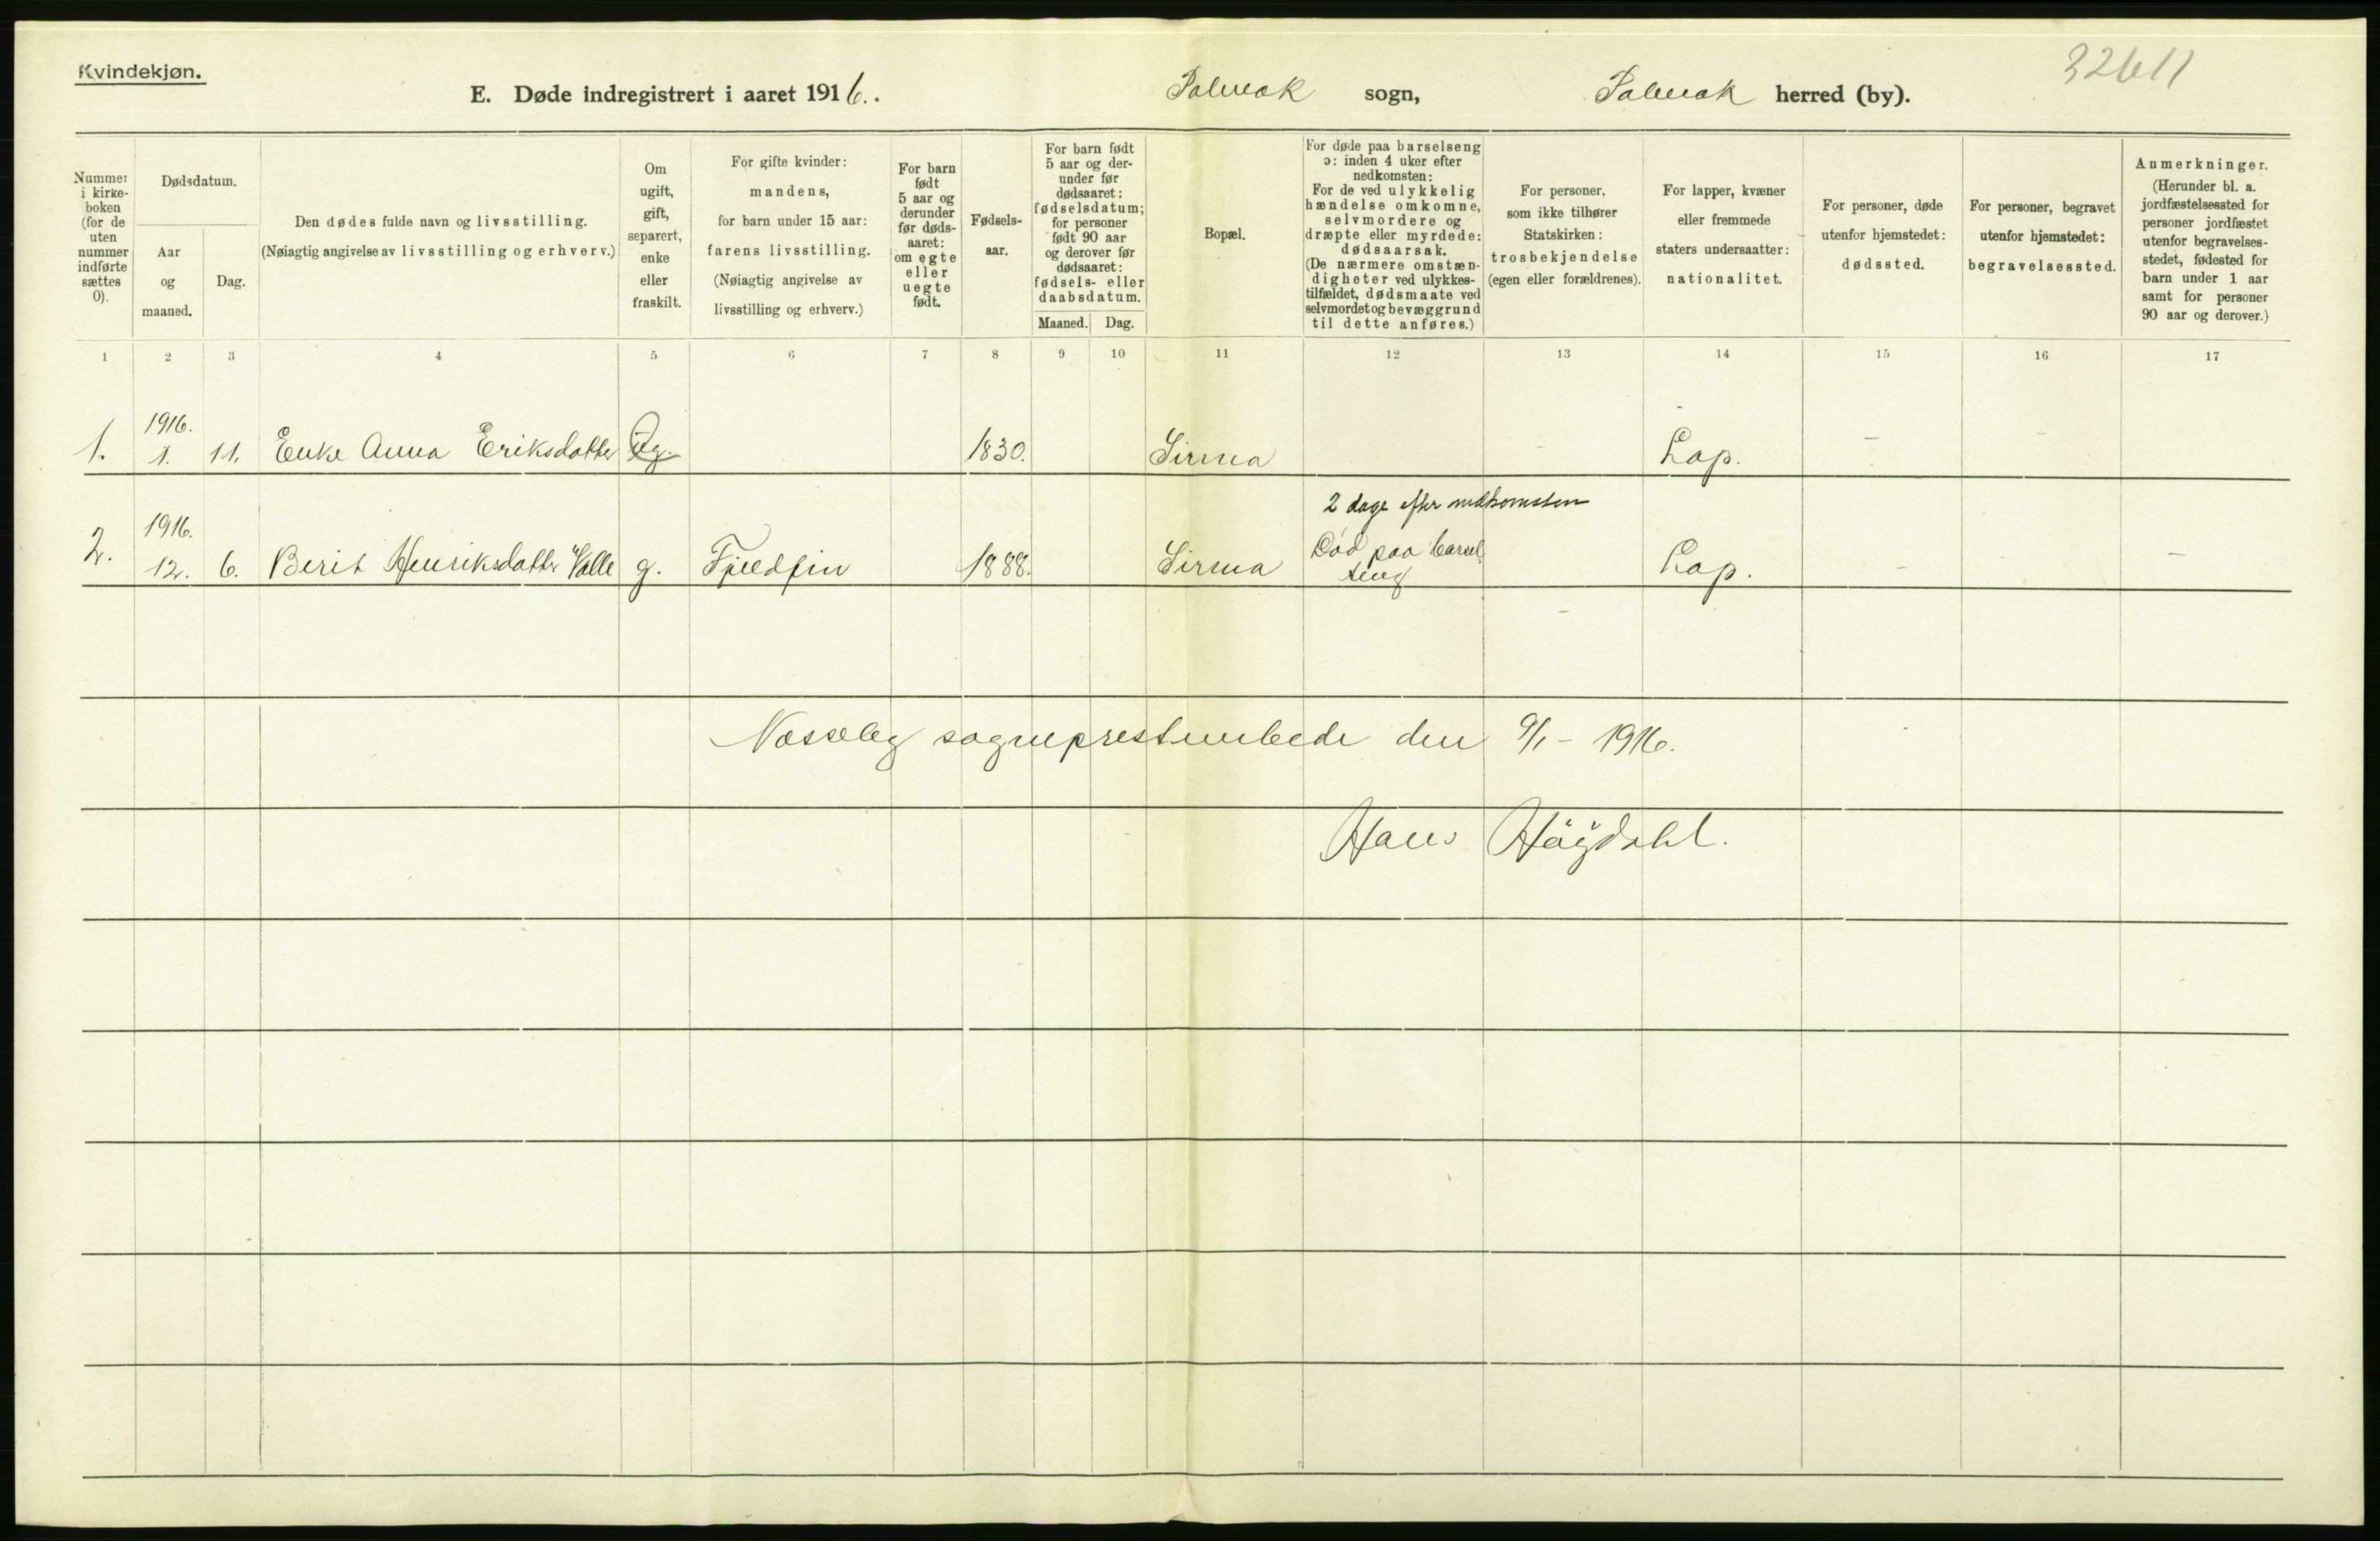 Kvindekjøn.
32611
E. Døde indregistrert i aaret 1916. Polmak sogn, Polmak herred (by).
Nummer i kirke-boken (for de uten nummer indførte sættes 0).
Dødsdatum.
Aar og maaned.
Dag.
Den dødes fulde navn og livsstilling.
(Nøiagtig angivelse av livsstilling og erhverv.)
Om ugift, gift, separert, enke eller fraskilt.
For gifte kvinder: mandens, for barn under 15 aar: farens livsstilling. (Nøiagtig angivelse av livsstilling og erhverv.)
For barn født 5 aar og derunder før døds-aaret: om egte eller uegte født.
Fødsels-aar.
For barn født 5 aar og der-under før dødsaaret: fødselsdatum; for personer født 90 aar og derover før dødsaaret: fødsels- eller daabsdatum.
Maaned. Dag.
Bopæl.
For døde paa barselseng ɔ: inden 4 uker efter nedkomsten: For de ved ulykkelig hændelse omkomne, selvmordere og dræpte eller myrdede: dødsaarsak. (De nærmere omstæn-digheter ved ulykkes-tilfældet, dødsmaate ved selvmordet og bevæggrund til dette anføres.)
For personer, som ikke tilhører Statskirken: trosbekjendelse (egen eller forældrenes).
For lapper, kvæner eller fremmede staters undersaatter: nationalitet.
For personer, døde utenfor hjemstedet: dødssted.
For personer, begravet utenfor hjemstedet: begravelsessted.
Anmerkninger. (Herunder bl. a. jordfæstelsessted for personer jordfæstet utenfor begravelses-stedet, fødested for barn under 1 aar samt for personer 90 aar og derover.)
1 2 3 4 5 6 7 8 9 10 11 12 13 14 15 16 17
1. 1916. 1. 11. Enke Anna Eriksdatter 1830. Sirma - Lap. - -
2 dage efter nedkomsten
2. 1916. 12. 6. Berit Henriksdatter Valle g. Fjeldfin 1888. Sirma Død paa barsel seng Lap. - - -
Nesseby sogneprestembede den 9/1 - 1916.
Hans Höÿdahl.